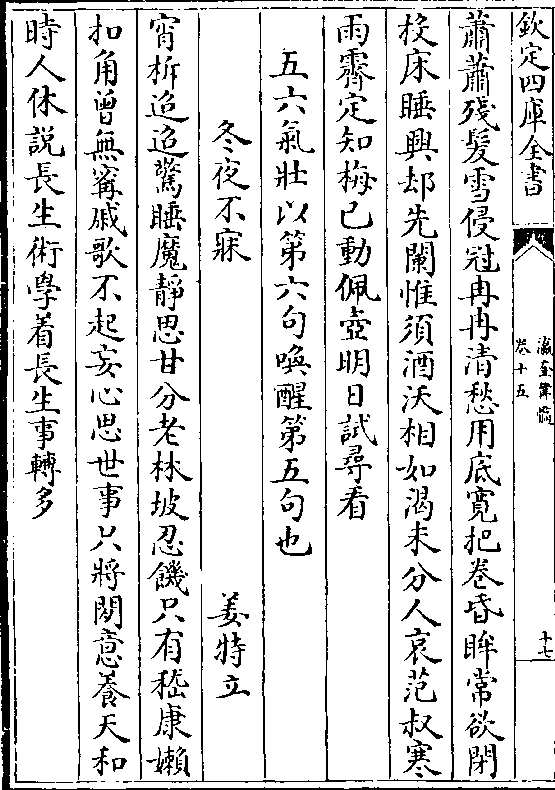 欽定四庫全書
蕭蕭殘髮雪侵冠冉冉清愁用底寛把卷昏眸常欲閉
投床睡興却先闌惟須酒沃相如渴未分人哀范叔寒
雨霽定知梅已動佩壺明日試尋看
五六氣壯以第六句喚醒第五句也
冬夜不寐 姜特立
宵柝迢迢驚睡魔靜思甘分老林坡忍饑只有嵇康嬾
扣角曾無甯戚歌不起妄心思世事只將閑意養天和
時人休説長生術學着長生事轉多
瀛奎律髓
卷十五
十七